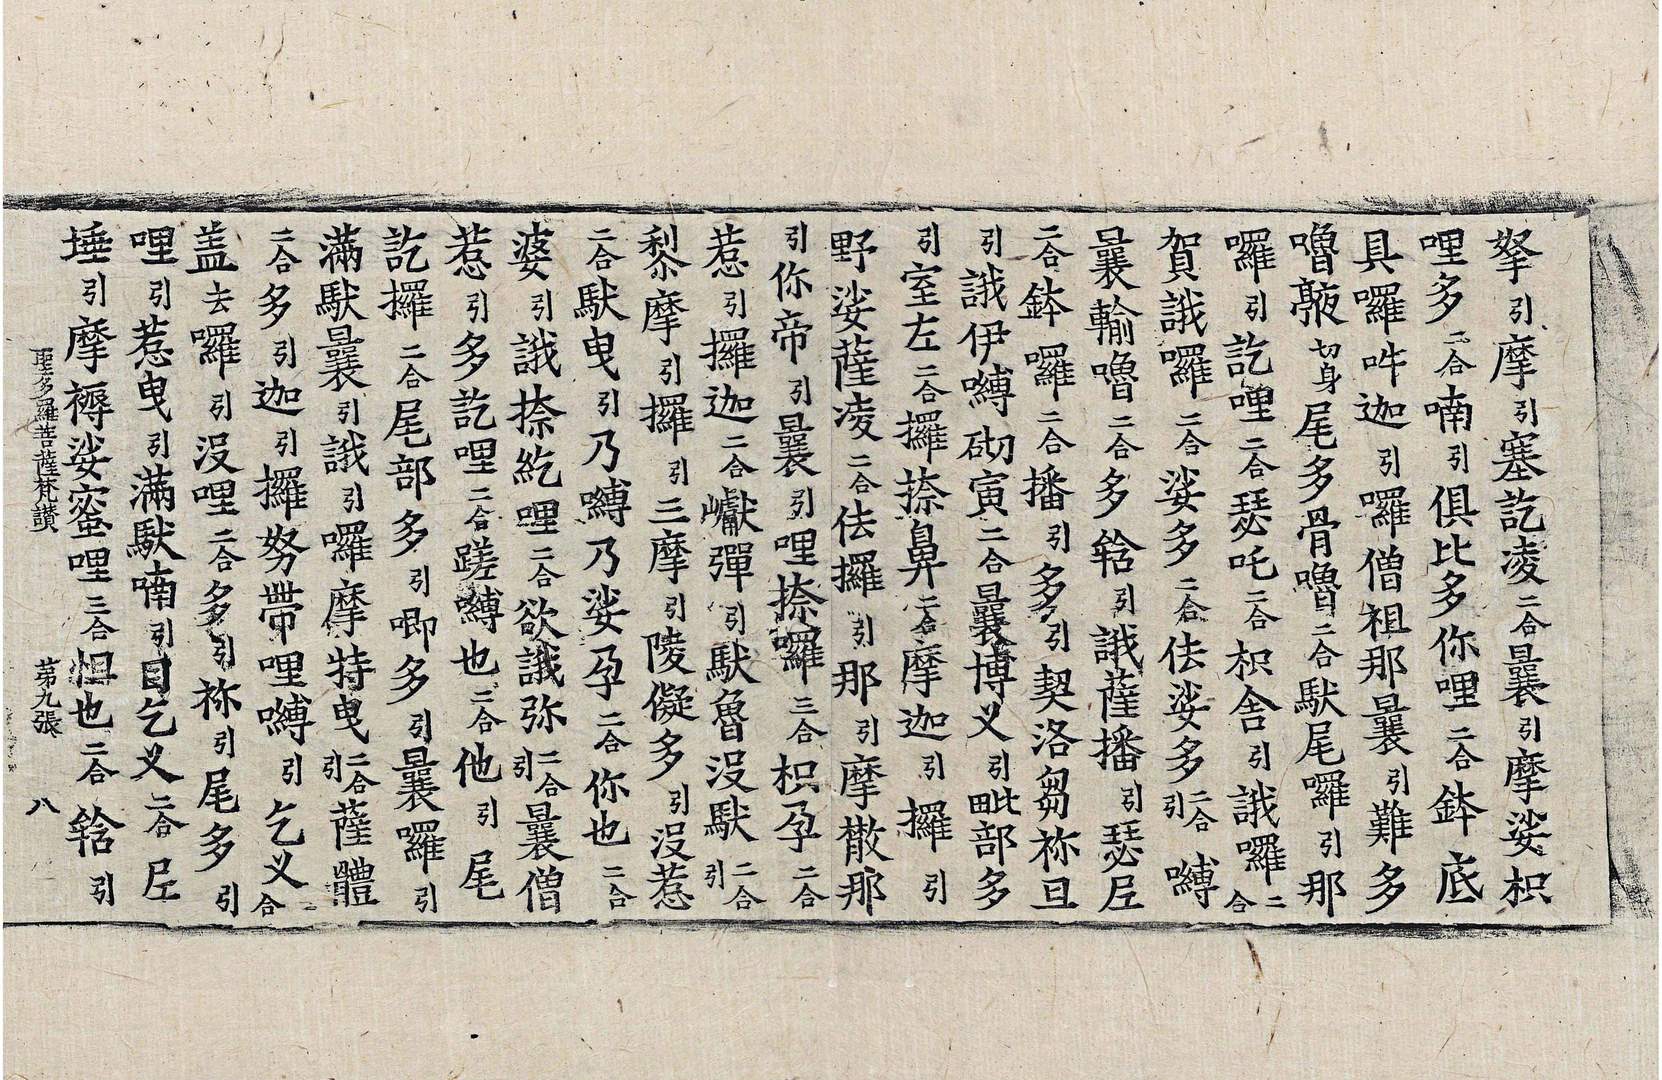 拏引摩引塞訖凌二合曩引摩娑枳
哩多二合喃引俱比多你哩二合鉢底
具囉吽迦引囉僧祖那曩引難多
嚕骸切身尾多骨嚕二合馱尾囉引那
囉引訖哩二合瑟吒二合枳舍引誐囉二合
賀誐囉二合娑多二合佉娑多二合引嚩
曩輸嚕二合多鎋引誐薩播引瑟𡰱
二合鉢囉二合播引多引契洛芻祢旦
引誐伊嚩砌寅二合曩博义引毗部多
引室左二合攞捺鼻二合摩迦引攞引
野娑薩凌二合佉攞引那引摩撒那
引你帝引曩引哩捺囉三合枳孕二合
惹引攞迦二合巘彈引馱魯沒馱二合引
黎摩引攞引三摩引陵儗多引沒惹
二合馱曳引乃嚩乃娑孕二合你也二合
婆引誐捺紇哩二合欲誐弥二合引曩僧
惹引多訖哩二合蹉嚩也二合他引尾
訖攞二合尾部多引唧多引曩囉引
滿馱曩引誐引囉摩特曳二合引薩體
二合多引迦引攞努帶哩嚩引乞义合
盖去囉引沒哩二合多引祢引尾多引
哩引惹曳引滿馱喃引目乞义二合𡰱
埵引摩褥娑蜜哩三合怛也二合鎋引
聖多羅菩薩梵讃 第九張 八